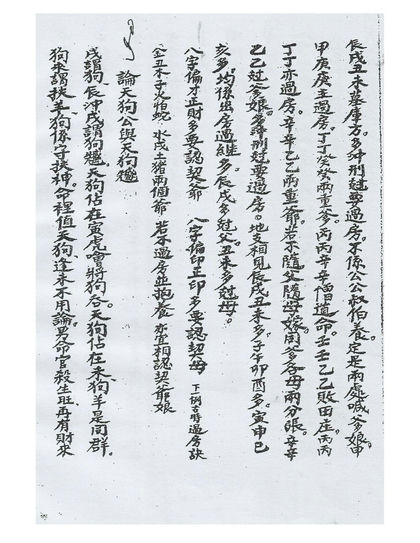 辰戌丑未墓庫方。多冲刑尅要過房。不係公公叔伯養。定是兩處喊爹娘。申
甲庚庚主過房。丁丁癸癸兩重爹。丙丙辛辛僧道命。壬壬乙乙敗田庄。丙丙
丁丁亦過房。辛辛乙乙兩重爺。若不隨父隨母嫁。同爹各母兩分張。辛辛
乙乙尅爹娘。多譚刑尅要過房。地相見辰戌丑未多。子午卯酉多。寅申巳
亥多。均係出房過繼多。辰戌多尅父。丑未多尅母。
八字偏才正財多要認契爺 八字偏印正印多要認契母 下例古時過房訣
金丑木子火怕蛇 水戌土猪兩個爺 若不過房並抱養 亦宜相認契爺娘
論天狗公與天狗𡜵
戌謂狗。辰冲戌謂狗𡜵。天狗佔在寅。虎嚐將狗吞。天狗佔在未。狗羊是同群。
狗來謂扶羊。狗係守扶神。命裡值天狗。逢未不用論。男命官殺生旺再有財來